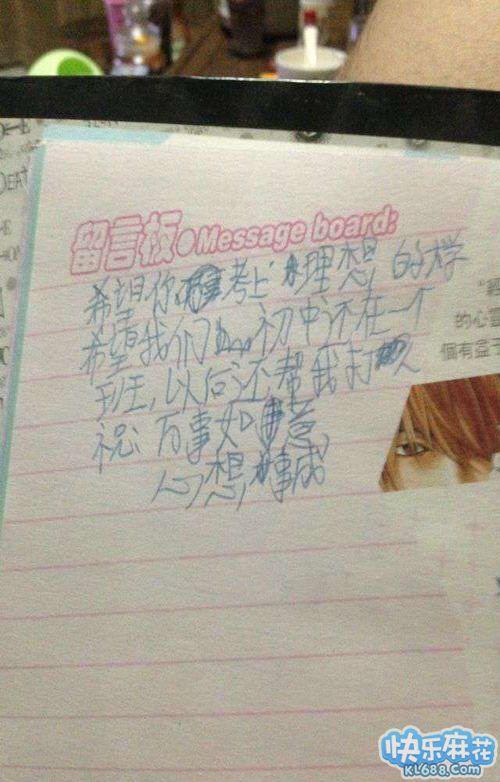 留言板 Message board:
希望你考上理想的学
希望我们初中还在一个
班,以后还帮我打人
祝 万事如意
心想事成
DEAT
的心
個有益于
快乐麻花
KL688.Com